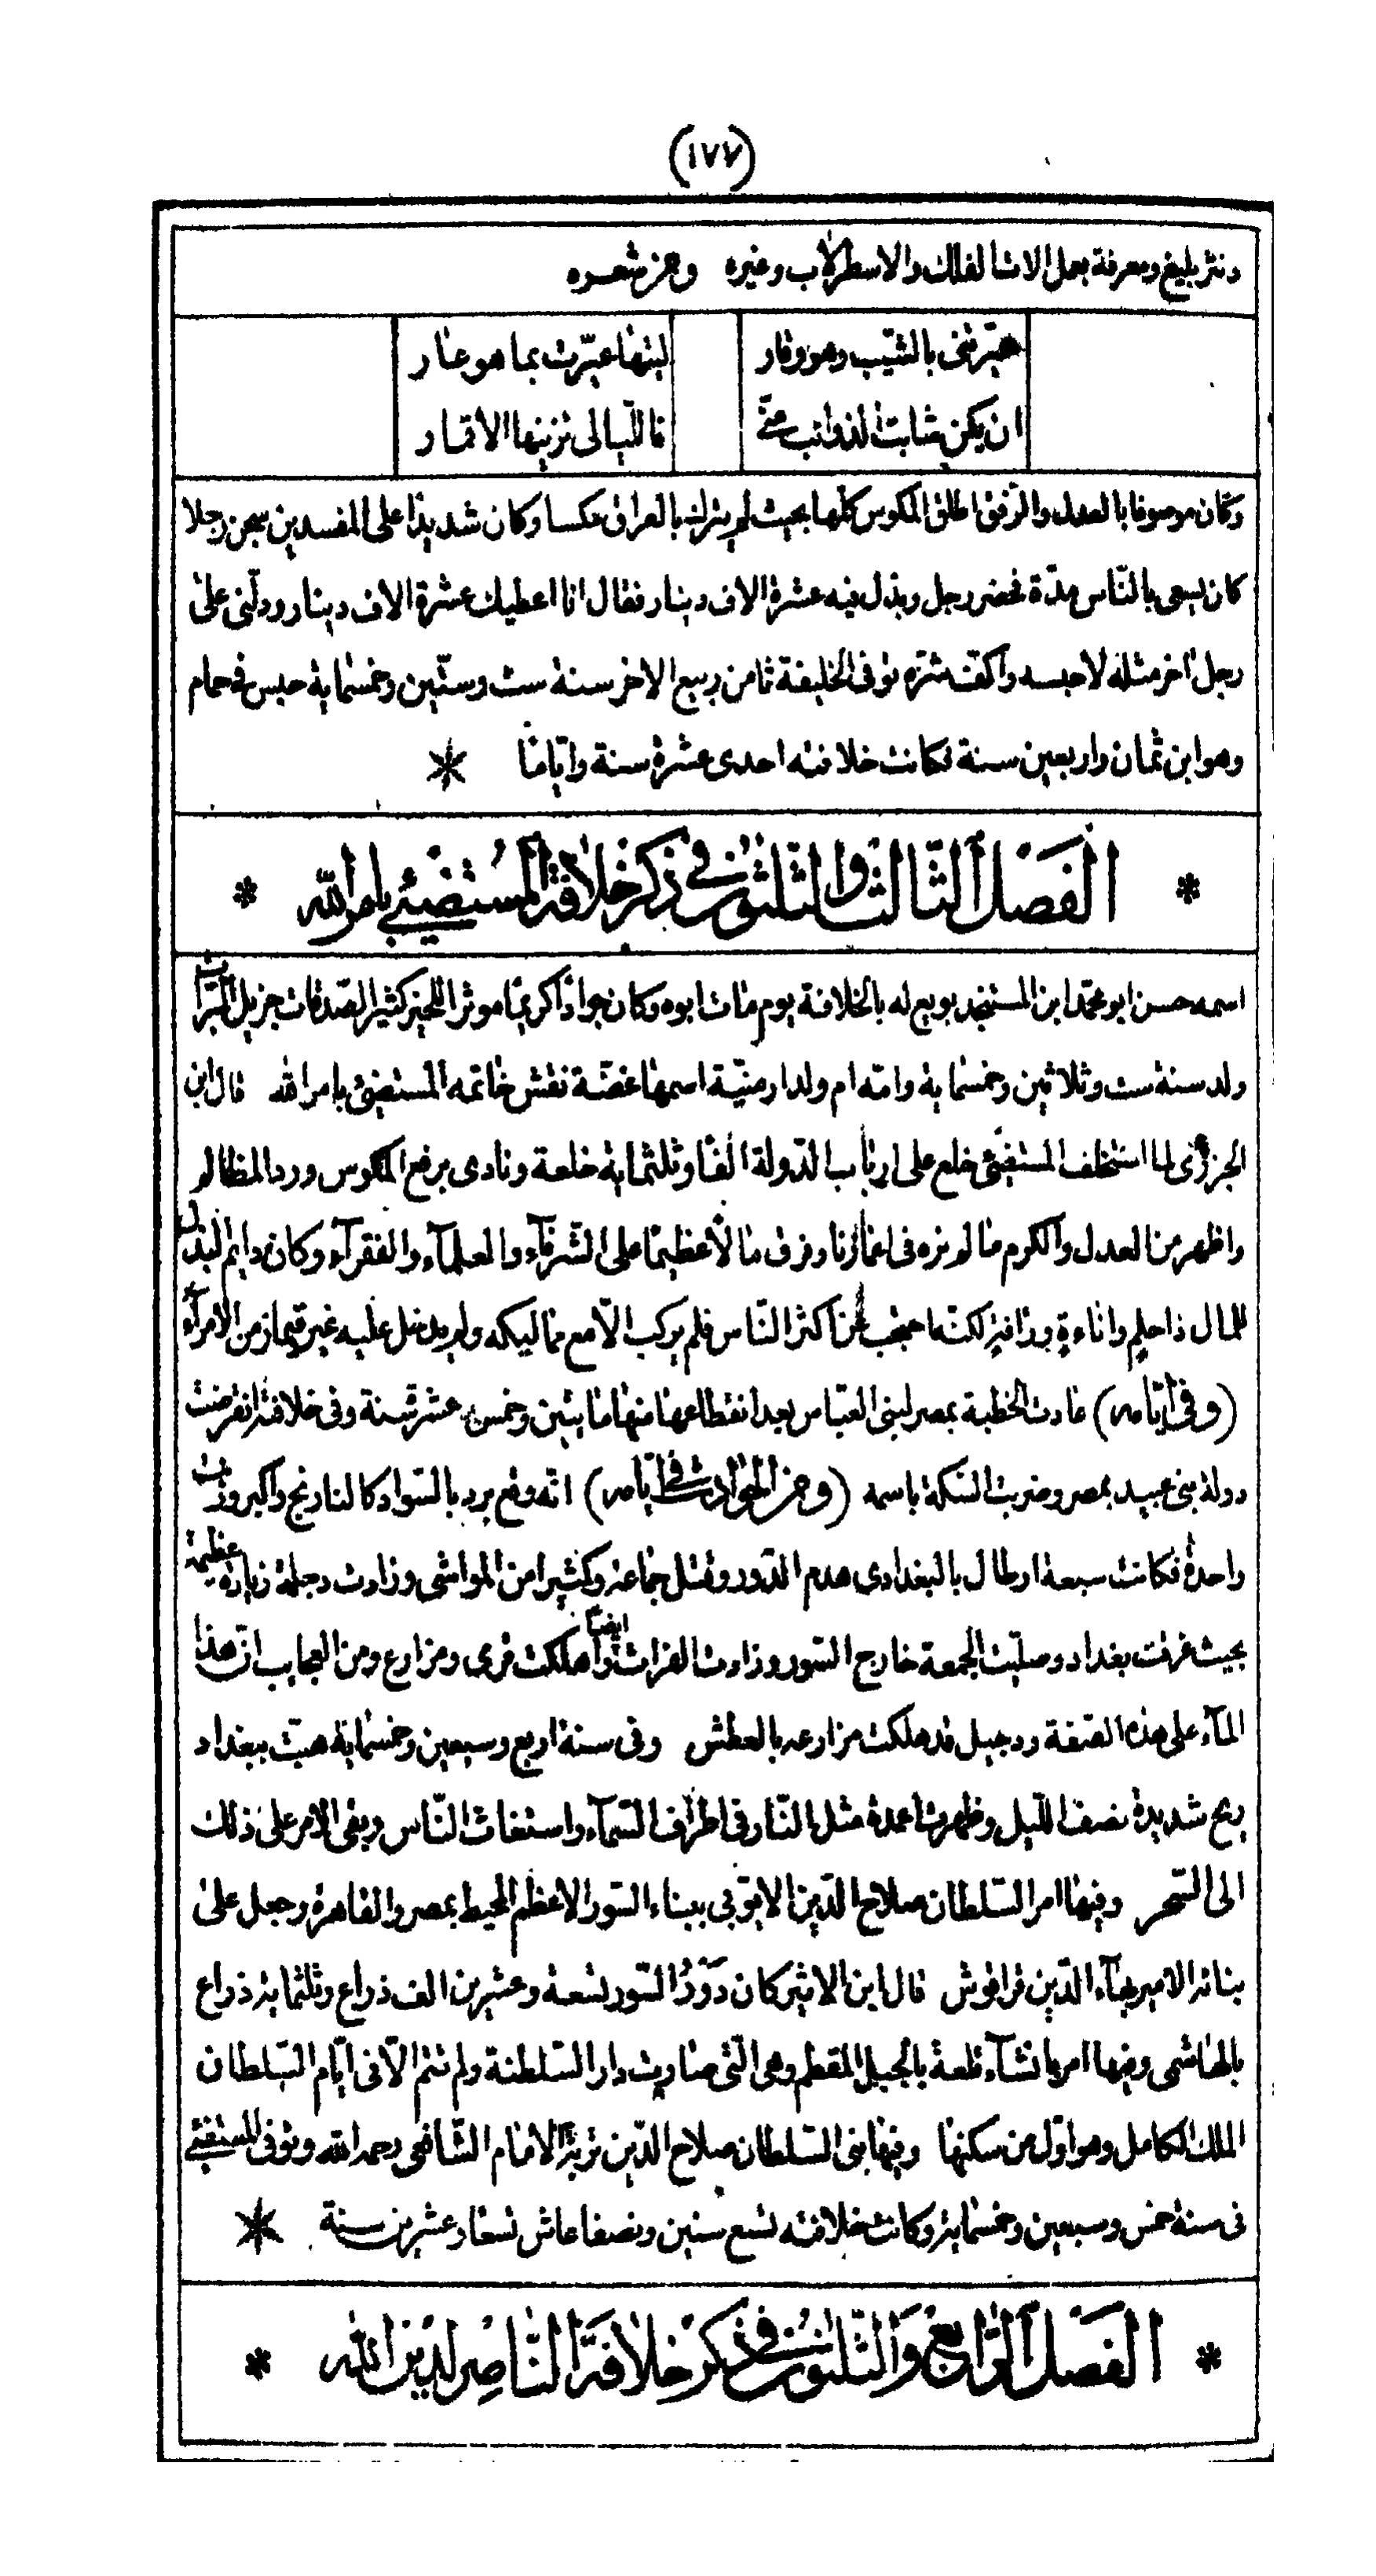 (١٧٧)
ونثر بليغ ومعرفة بعمل الات الفلك والاسطرلاب وغيره ومن شعره
عيّرتنى بالشيب وهو وقار
ليتها عيّرت بما هو عار
ان يكن شابت الذوائب منّى
فالليالى تزينها الاقمار
وكان موصوفا بالعدل والرفق اطلق المكوس كلها بحيث لم يترك بالعراق مكسا وكان شديدا على المفسدين سجن رجلا
كان يسعى بالنّاس مدّة فحضر رجل وبذل فيه عشرة الاف دينار فقال انا اعطيك عشرة الاف دينار ودلّنى على
رجل اخر مثله لاحبسه واكف شرّه توفى الخليفة ثامن ربيع الاخر سنة ست وستّين وخمسماية حبس فى حمام
وهو ابن ثمان واربعين سنة فكانت خلافته احدى عشرة سنة وايّاما *
* الفصل الثّالث والثّلثون فى ذكر خلافة المستضئ بامر اللّه *
اسمه حسن ابو محمّد ابن المستنجد بويع له بالخلافة يوم مات ابوه وكان جوادا كريما موثرا للخير كثير الصّدقات جزيل المبرّات
ولد سنة ست وثلاثين وخمسماية وامّه ام ولد ارمنيّة اسمها غضّة نقش خاتمه المستضئ بامر الله قال ابن
الجوزى لما استخلف المستضئ خلع على ارباب الدّولة الفا وثلثماية خلعة ونادى برفع المكوس ورد المظالم
واظهر من العدل والكرم ما لم نره فى اعمارنا وفرق مالا عظيما على الشّرفآء والعلمآء والفقرآء وكان دايم البذل
للمال ذا حلم واناءة ورافة لكنّه احتجب عن اكثر النّاس فلم يركب الّا مع مماليكه ولم يدخل عليه غير قيماز من الامرآء
(وفى ايّامه) عادت الخطبة بمصر لبنى العبّاس بعد انقطاعها منها مايتين وخمس عشرة سنة وفى خلافته انقرضت
دولة بنى عبيد بمصر وضربت السّكة باسمه (ومن الحوادث فى ايّامه) انّه وقع برد بالسّواد كالنارنج واكبر وزنت
واحدة فكانت سبعة ارطال بالبغدادى هدم الدّور وقتل جماعة وكثيرا من المواشى وزادت دجلة زيادة عظيمة
بحيث غرقت بغداد وصلّيت الجمعة خارج السّور وزادت الفرات ايضاً واهلكت قرى ومزارع ومن العجايب انّ هذا
المآء على هذه الصّفة ودجيل قد هلكت مزارعه بالعطش وفى سنة اربع وسبعين وخمسماية هبّت ببغداد
ريح شديدة نصف اللّيل وظهرت اعمدة مثل النّار فى اطراف السّمآء واستغاث النّاس وبقى الامر على ذلك
الى السّحر وفيها امر السّلطان صلاح الدّين الايّوبى ببناء السّور الاعظم المحيط بمصر والقاهرة وجعل على
بنائه الامير بهآء الدّين قراقوش قال ابن الاثير كان دَوْرُ السّور تسعة وعشرين الف ذراع وثلثماية ذراع
بالهاشمى وفيها امر بانشآء قلعة بالجبل المقطم وهى الّتى صارت دار السّلطنة ولم تتم الّا فى ايّام السّلطان
الملك الكامل وهو اوّل من سكنها وفيها بنى السّلطان صلاح الدّين تربة الامام الشّافعى رحمه الله وتوفى المستضئ
فى سنة خمس وسبعين وخمسماية وكانت خلافته تسع سنين ونصفا عاش تسعا وعشرين سنة *
* الفصل الرّابع والثّلثون فى ذكر خلافة النّاصر لدين اللّه *